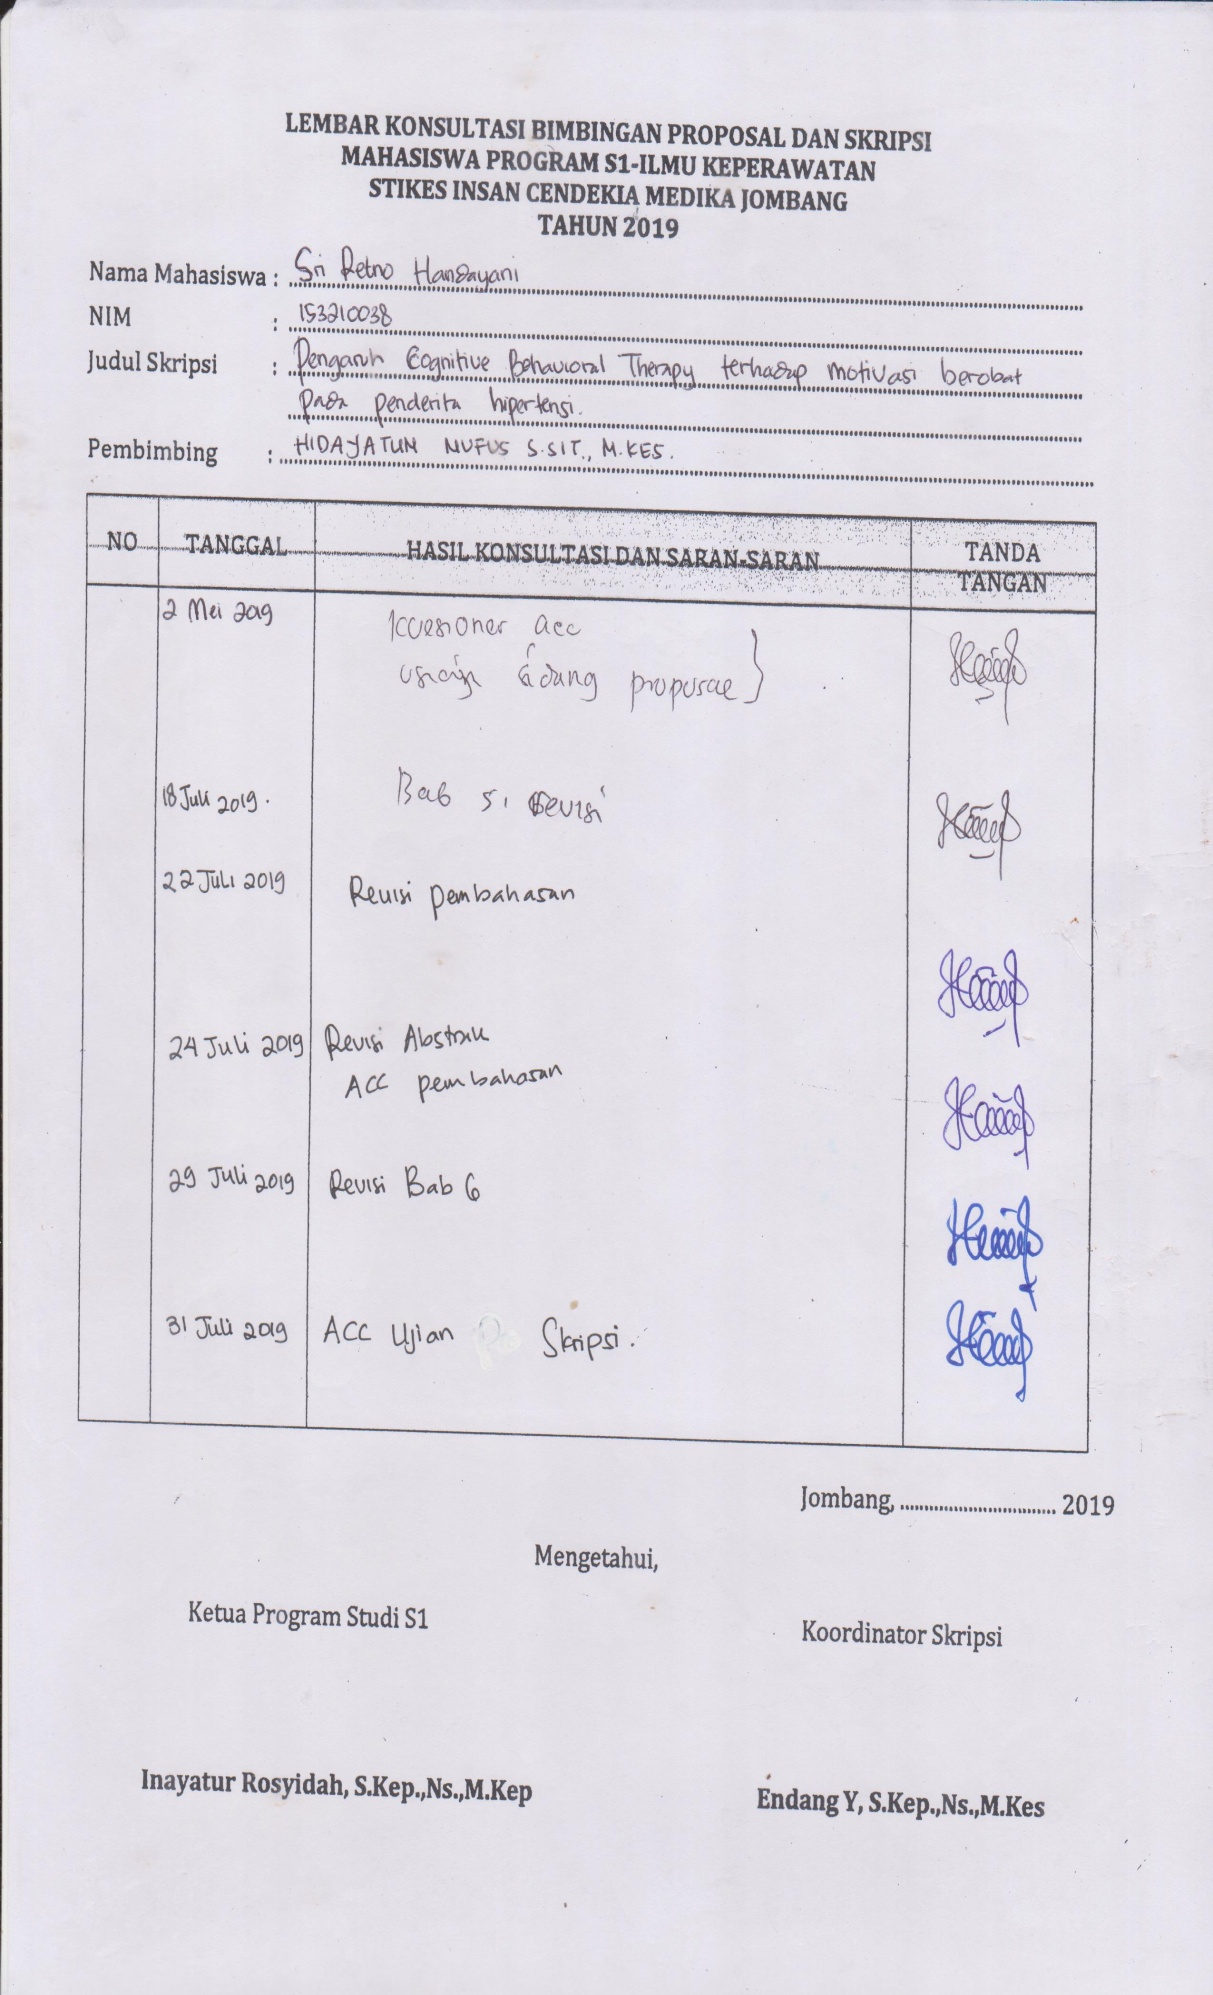 LEMBAR KONSULTASI BIMBINGAN PROPOSAL DAN SKRIPSI
MAHASISWA PROGRAM S1-ILMU KEPERAWATAN
STIKES INSAN CENDEKIA MEDIKA JOMBANG
TAHUN 2019
Nama Mahasiswa : Sri Retno Handayani
NIM : 153210038
Judul Skripsi : Pengaruh Cognitive Behavioral Therapy terhadap motivasi berobat
pada penderita hipertensi.
Pembimbing : HIDAYATUN NUFUS S.SIT., M.KES.
NO TANGGAL HASIL KONSULTASI DAN SARAN-SARAN TANDA TANGAN
2 Mei 2019 Kuesioner acc
sidang proposal
18 Juli 2019. Bab 5, revisi
22 Juli 2019 Revisi pembahasan
24 Juli 2019 Revisi Abstrak
ACC pembahasan
29 Juli 2019 Revisi Bab 6
31 Juli 2019 ACC Ujian Skripsi.
Jombang, .................................. 2019
Mengetahui,
Ketua Program Studi S1 Koordinator Skripsi
Inayatur Rosyidah, S.Kep.,Ns.,M.Kep Endang Y, S.Kep.,Ns.,M.Kes